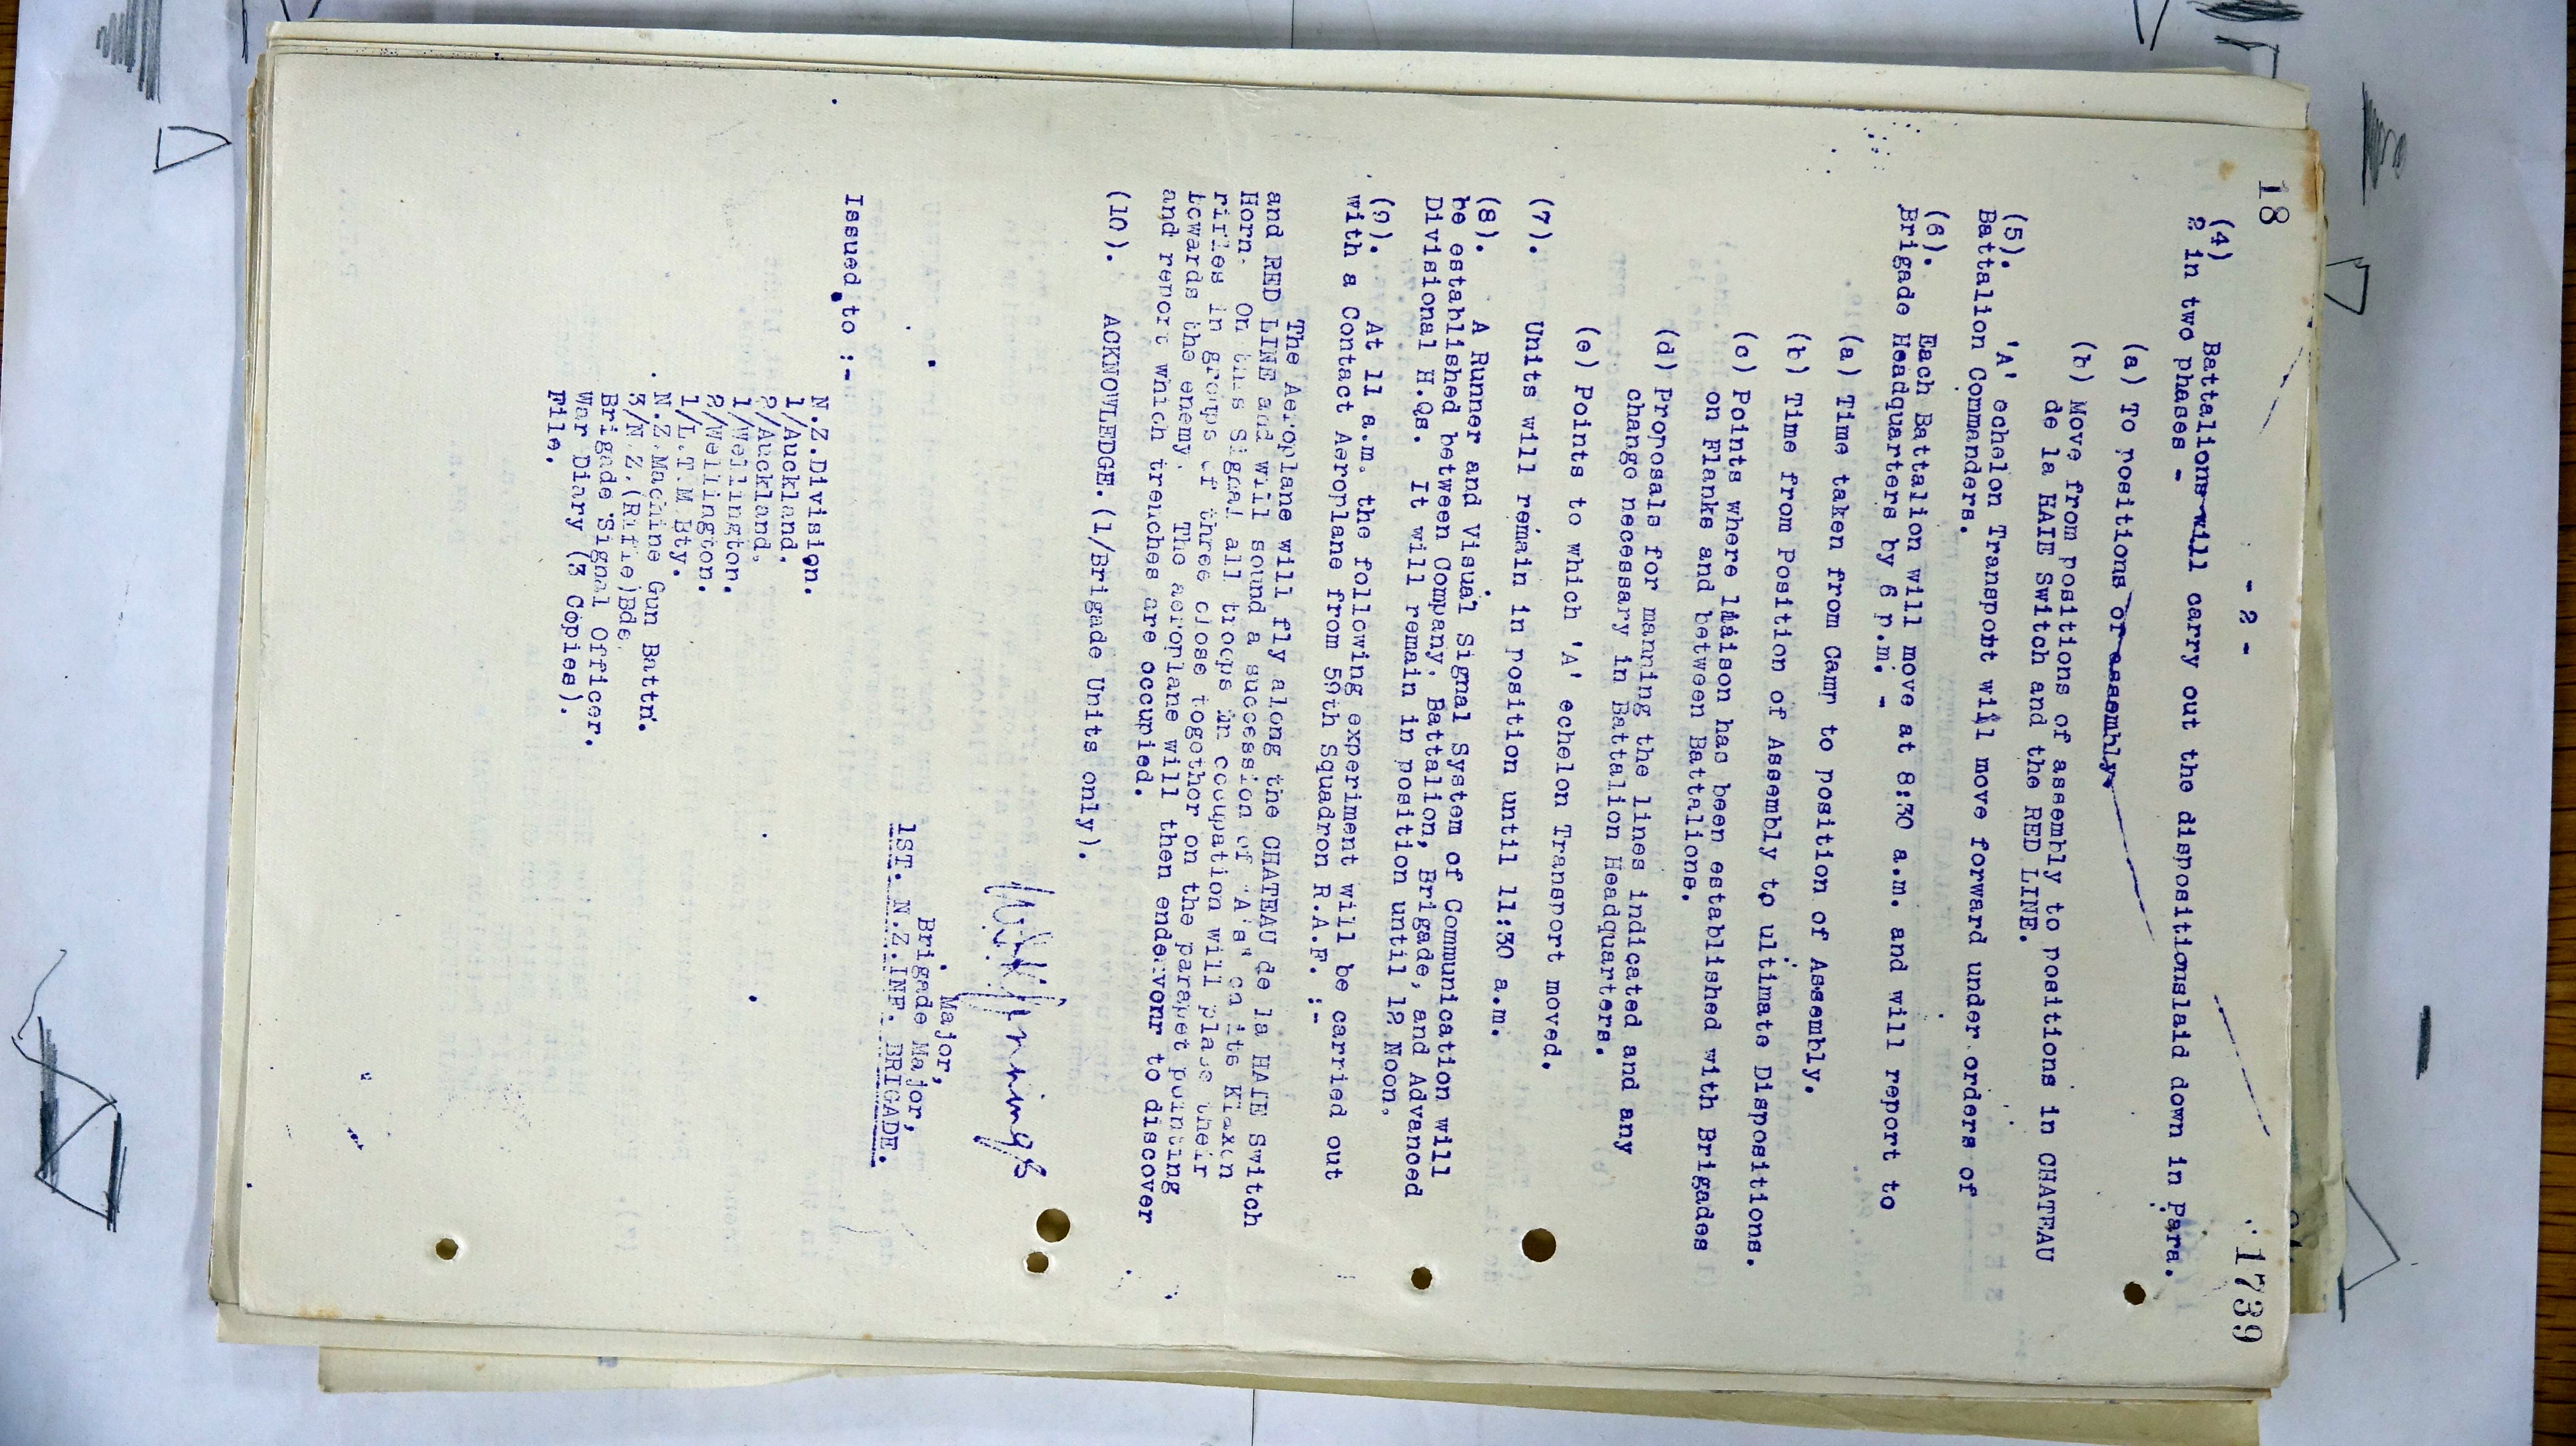 18
- 2 -
1739
(4) Battalions will carry out the dispositionslaid down in Para.
2 in two phases -
(a) To positions of assembly.
(b) Move from positions of assembly to positions in CHATEAU
de la HAIE Switch and the RED LINE.
(5). 'A' echelon Transport will move forward under orders of
Battalion Commanders.
(6). Each Battalion will move at 8:30 a.m. and will report to
Brigade Headquarters by 6 p.m. -
(a) Time taken from Camp to position of Assembly.
(b) Time from Position of Assembly to ultimate Dispositions.
(c) Points where liaison has been established with Brigades
on Flanks and between Battalions.
(d) Proposals for manning the lines indicated and any
change necessary in Battalion Headquarters.
(e) Points to which 'A' echelon Transport moved.
(7). Units will remain in position until 11:30 a.m.
(8). A Runner and Visual Signal System of Communication will
be established between Company, Battalion, Brigade, and Advanced
Divisional H.Qs. It will remain in position until 12 Noon.
(9). At 11 a.m. the following experiment will be carried out
with a Contact Aeroplane from 59th Squadron R.A.F. :-
The Aeroplane will fly along the CHATEAU de la HAIE Switch
and RED LINE and will sound a succession of "A's" on its Klaxon
Horn. On this Signal all troops in occupation will place their
rifles in groups of three close together on the parapet pointing
towards the enemy. The aeroplane will then endeavour to discover
and report which trenches are occupied.
(10). ACKNOWLEDGE. (1/Brigade Units only).
Major,
Brigade Major,
1ST. N.Z.INF. BRIGADE.
Issued to :-
N.Z.Division.
1/Auckland.
2/Auckland.
1/Wellington.
2/Wellington.
1/L.T.M.Bty.
N.Z.Machine Gun Battn.
3/N.Z.(Rifle)Bde.
Brigade Signal Officer.
War Diary (3 Copies).
File.